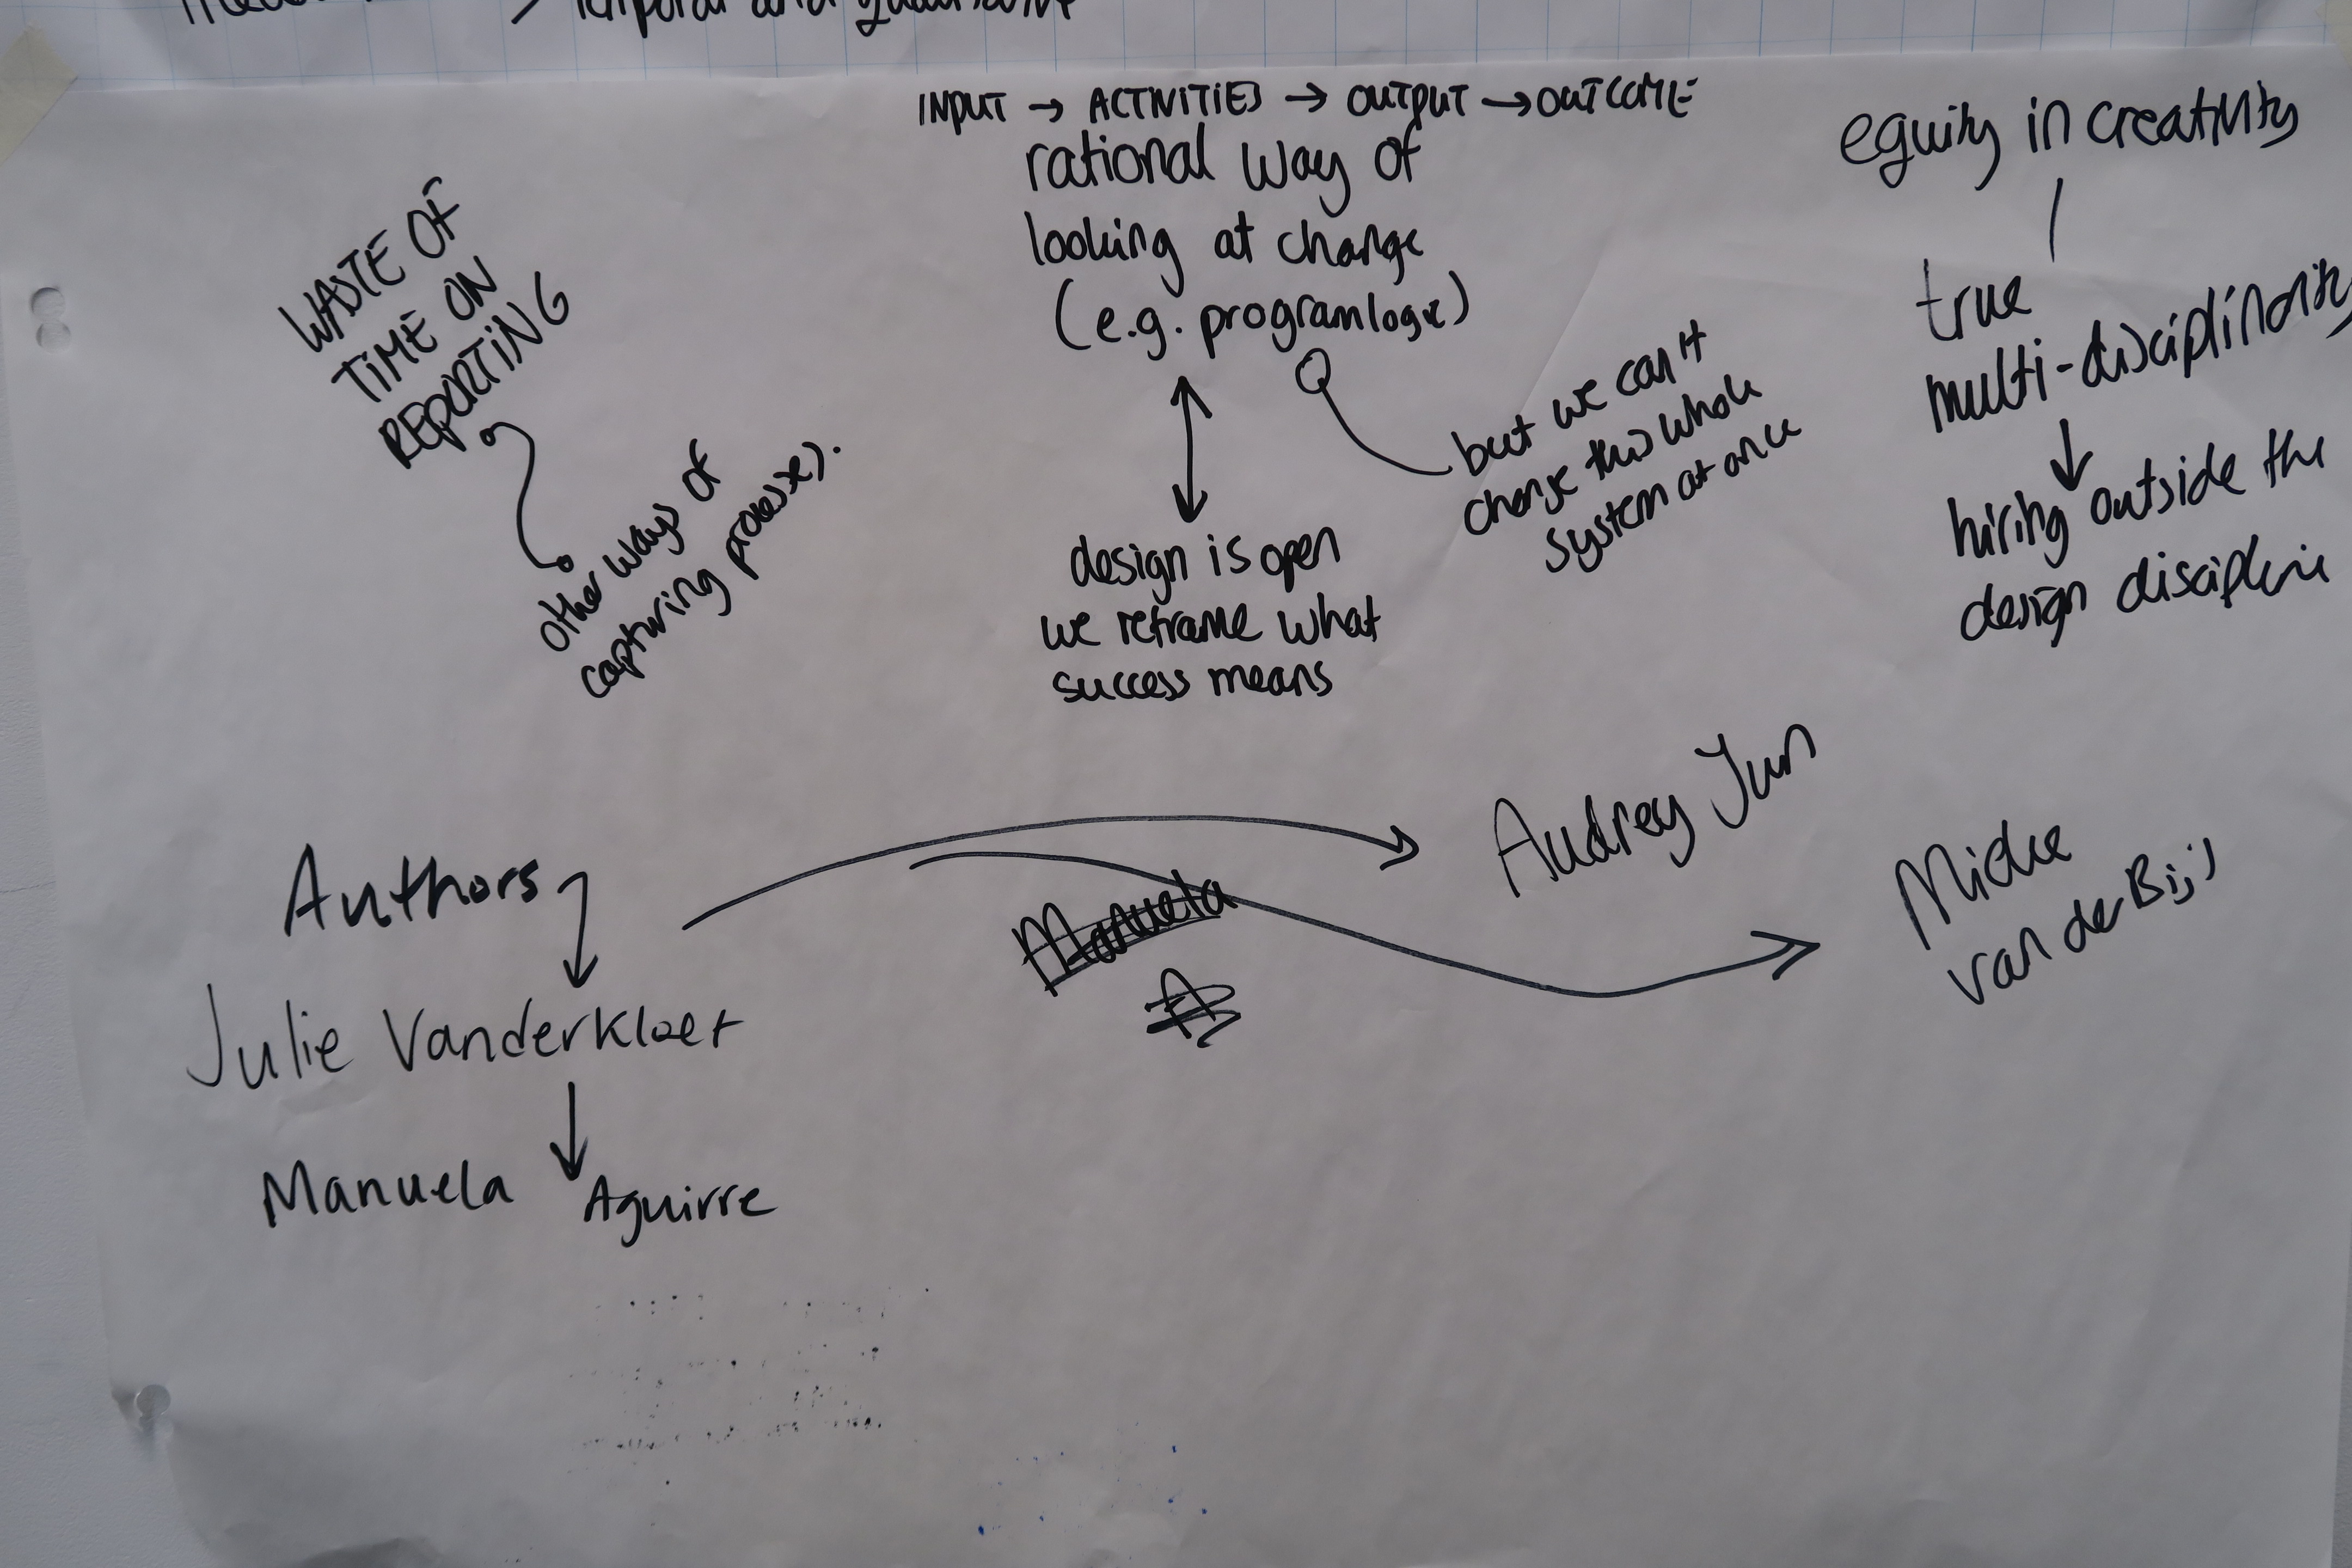 temporal and
INPUT → ACTIVITIES → OUTPUT → OUTCOME
rational way of
looking at change
(e.g. program logic)
but we can't
change this whole
system at once
design is open
we reframe what
success means
WASTE OF
TIME ON
REPORTING
other ways of
capturing process).
equity in creativity
true
multi-disciplinarity
hiring outside the
design discipline
Authors
Julie Vanderkloet
Manuela Aguirre
Manuela
A
Audrey Jun
Mieke
van der Bijl